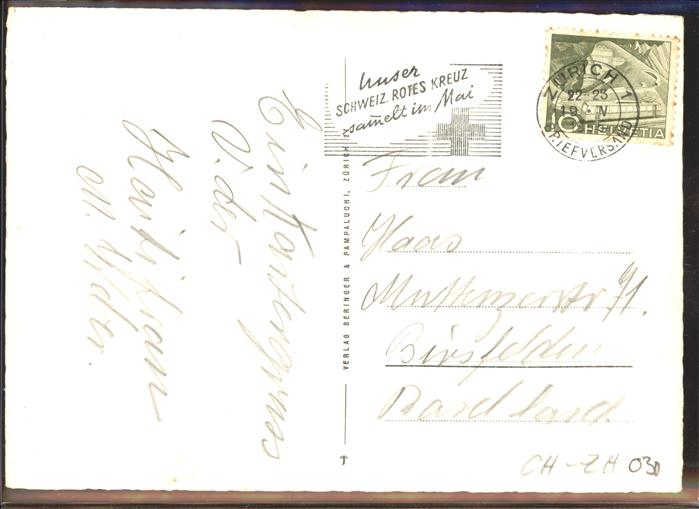 Unser
SCHWEIZ. ROTES KREUZ
sammelt im Mai
ZÜRICH 1
22-23
BRIEFVERSAND
10
HELVETIA
VERLAG BERINGER & PAMPALUCHI, ZÜRICH
Ein Kartengruss
Frau
Haas
Muttenzerstr 71.
Birsfelden
Baselland.
CH-ZH 030